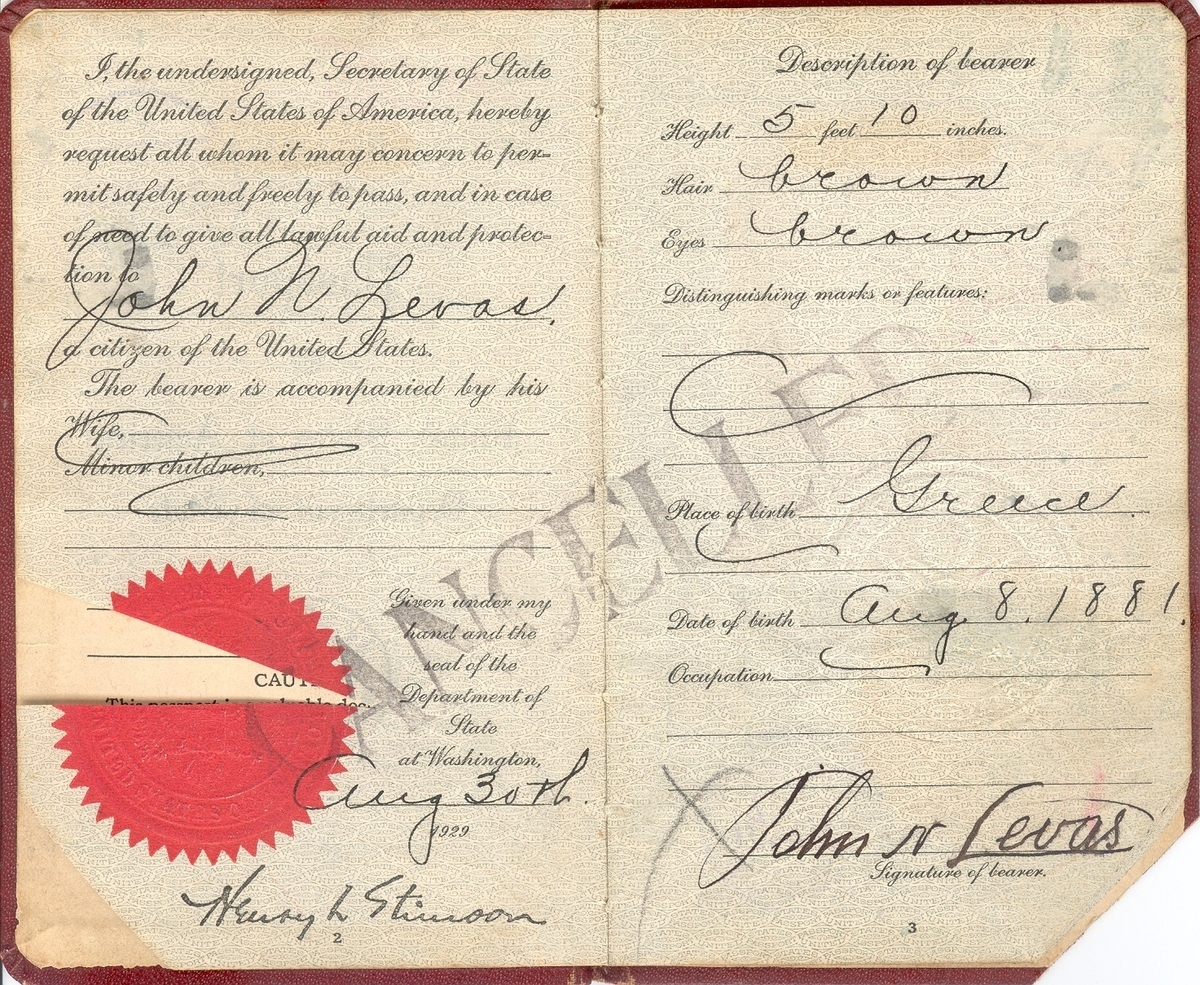 I, the undersigned, Secretary of State
of the United States of America, hereby
request all whom it may concern to per-
mit safely and freely to pass, and in case
of need to give all lawful aid and protec-
tion to
John N. Levas,
a citizen of the United States.
The bearer is accompanied by his
Wife,
Minor children,
CAUT
This passport is
Given under my
hand and the
seal of the
Department of
State
at Washington,
Aug 30th.
1929
Henry L Stimson
2
CANCELLED
Description of bearer
Height 5 feet 10 inches.
Hair brown
Eyes brown
Distinguishing marks or features:
Place of birth Greece.
Date of birth Aug. 8. 1881.
Occupation
John N Levas
Signature of bearer.
3